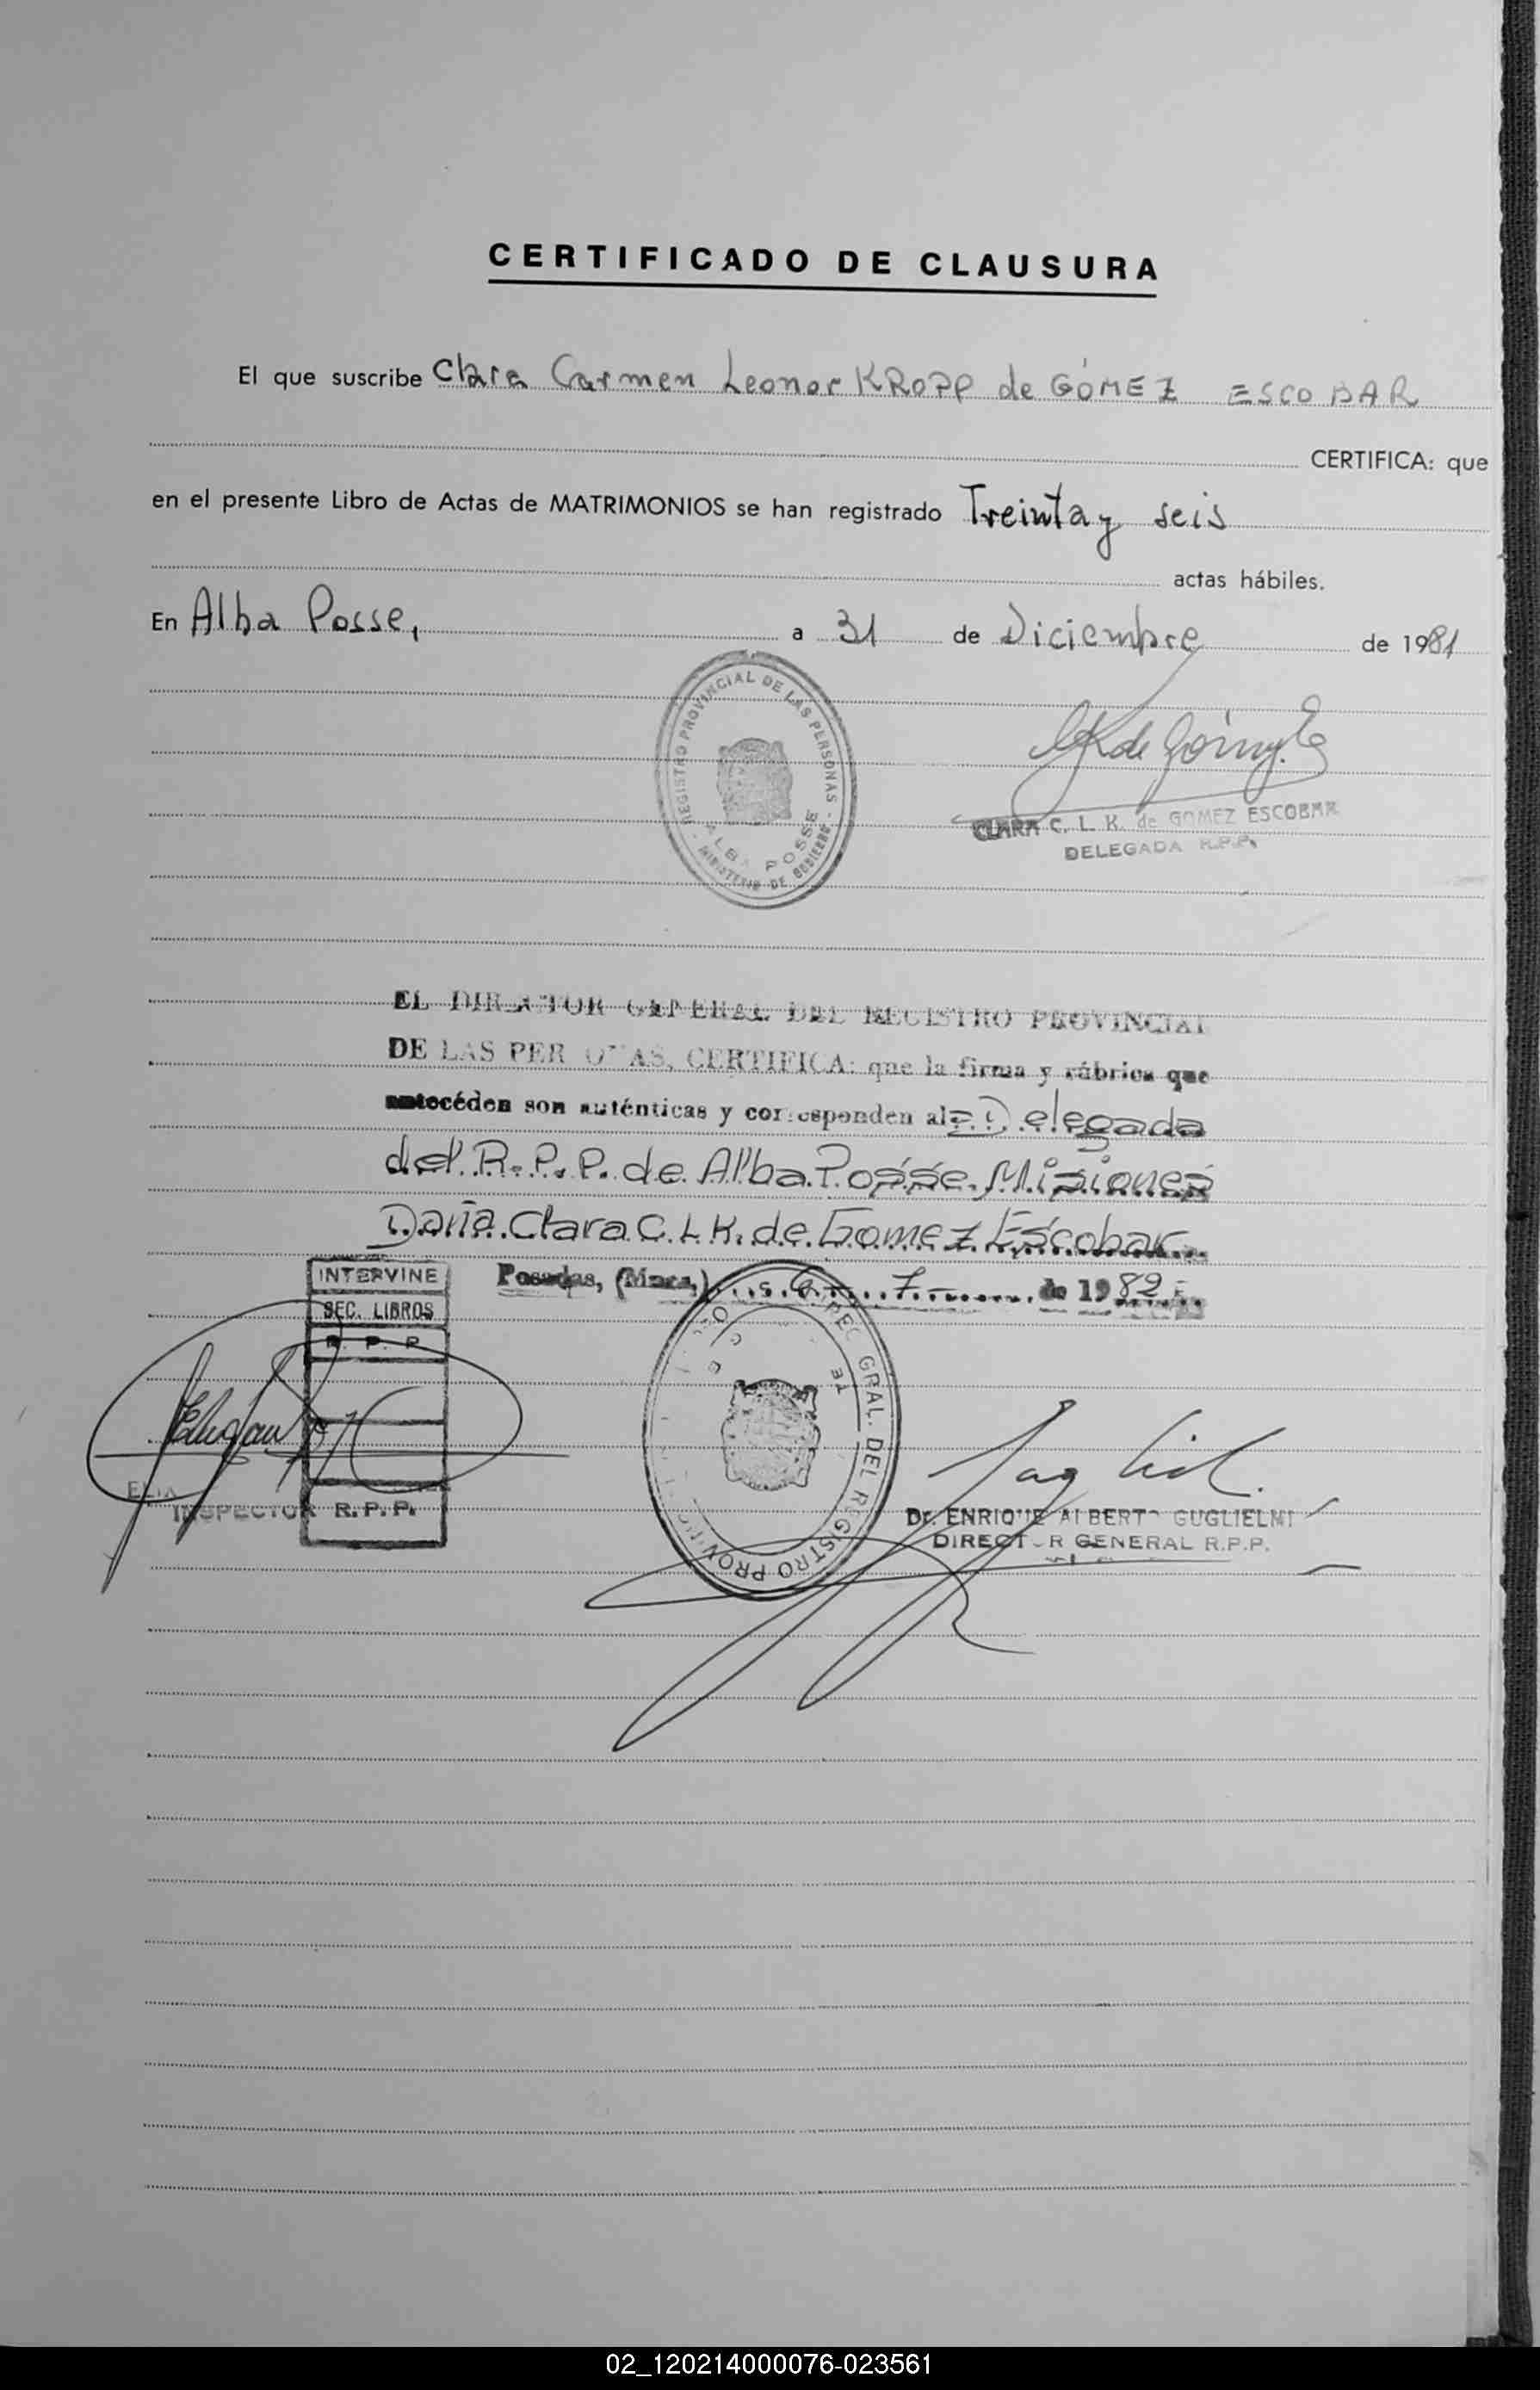 CERTIFICADO DE CLAUSURA
El que suscribe Clara Carmen Leonor KROPP de GÓMEZ ESCOBAR
CERTIFICA: que
en el presente Libro de Actas de MATRIMONIOS se han registrado Treinta y seis
actas hábiles.
En Alba Posse, a 31 de Diciembre de 1981
REGISTRO PROVINCIAL DE LAS PERSONAS
ALBA POSSE
MINISTERIO DE GOBIERNO
CLARA C. L. K. de GOMEZ ESCOBAR
DELEGADA R.P.P.
EL DIRECTOR GENERAL DEL REGISTRO PROVINCIAL
DE LAS PERSONAS, CERTIFICA: que la firma y rúbrica que
antecéden son auténticas y corresponden al Delegada
del R.P.P. de Alba Posse. Misiones
Doña Clara C.L.K. de Gomez Escobar
Posadas, (Mnes,) 6 7 de 1982
INTERVINE
SEC. LIBROS
R. P. P.
INSPECTOR R.P.P.
GRAL. DEL REGISTRO PROVINCIAL
Dr. ENRIQUE ALBERTO GUGLIELMI
DIRECTOR GENERAL R.P.P.
02_120214000076-023561